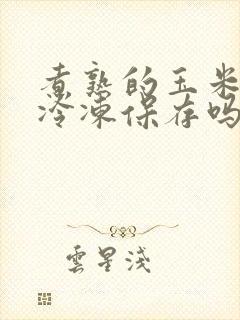 煮熟的玉米
冷凍保存吗
雲星淺